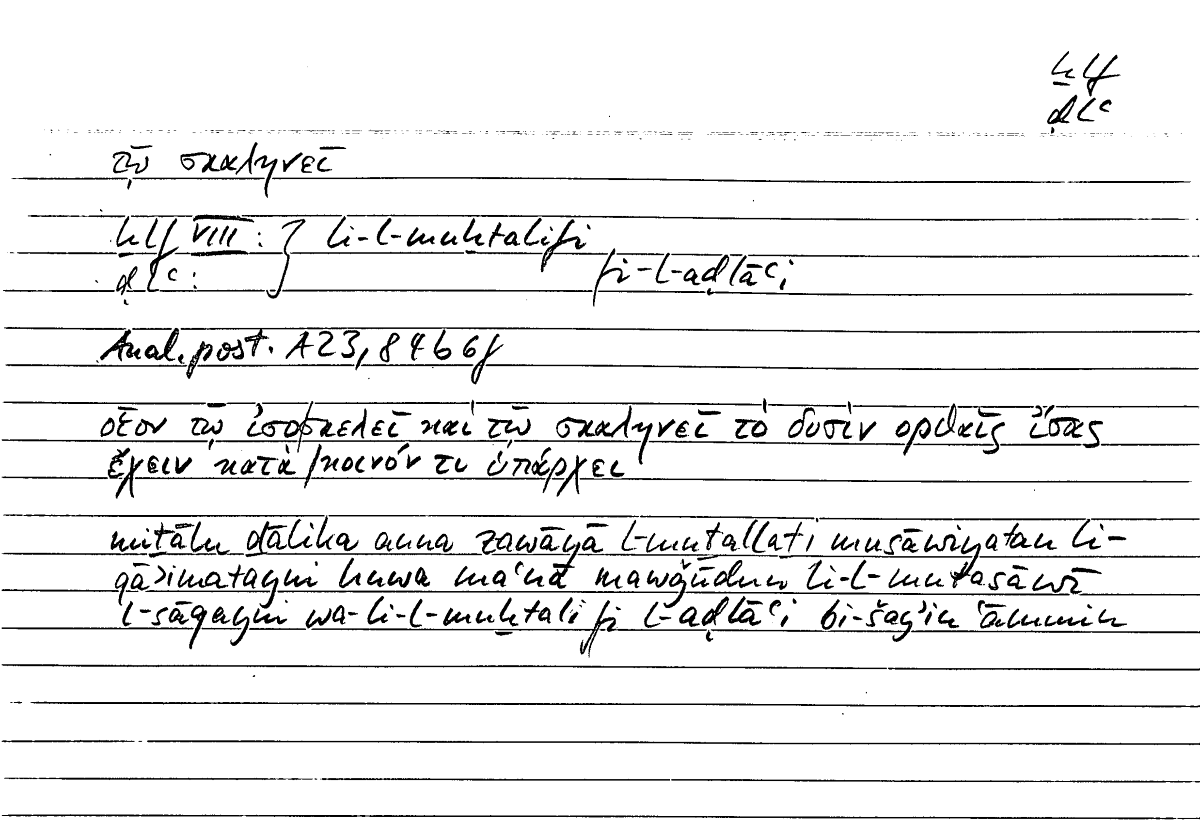 ḫlf
ḍlʿ
τῷ σκαληνεῖ
ḫlf VIII : } li-l-muḫtalifi
ḍlʿ : fi-l-aḍlāʿi
Anal. post. A23, 84b6f
οἷον τῷ ἰσοσκελεῖ καὶ τῷ σκαληνεῖ τὸ δυσὶν ορθαῖς ἴσας
ἔχειν κατὰ κοινόν τι ὑπάρχει
miṯālu ḏālika anna zawāyā l-muṯallaṯi musāwiyatan li-
qāʾimatayni huwa maʿnā mawǧūdun li-l-mutasāwī
l-sāqayni wa-li-l-muḫtalifi l-aḍlāʿi bi-šayʾin ʿāmmin